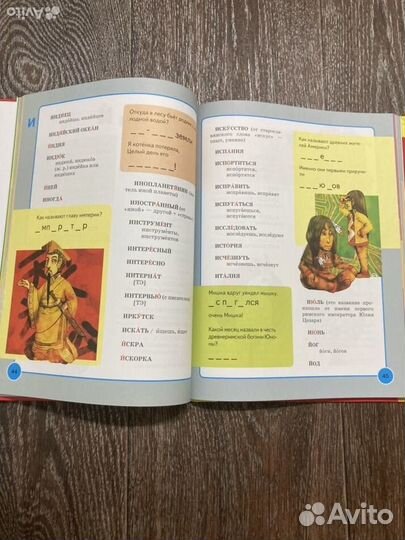 Avito
И
ИНДЕ́ЕЦ
инде́йцы, инде́йцев
ИНДИ́ЙСКИЙ ОКЕА́Н
И́НДИЯ
ИНДЮ́К
и́ндюшка
И́НЕЙ
ИНОГДА́
Как называют главу империи?
_ мп _ р _ т _ р
Откуда в лесу бьёт
водой?
земли
Я котёнка потеряла,
Целый день его
_ _ _ _ _ _ !
ИНОПЛАНЕТЯ́НИН
тель иной планеты)
ИНОСТРА́ННЫЙ (от
«иной» — другой +
ИНСТРУМЕ́НТ
инструме́нты,
инструме́нтов
ИНТЕРЕ́СНЫЙ
ИНТЕРЕ́СНО
ИНТЕРНА́Т
[ТЭ]
ИНТЕРВЬЮ́
[ТЭ]
ИРКУ́ТСК
ИСКА́ТЬ / ищешь, ищет
И́СКРА
И́СКОРКА
44
ИСКУ́ССТВО (от старосла-
вянского слова «искус» —
опыт, умение)
ИСПА́НИЯ
ИСПО́РТИТЬСЯ
испо́ртится,
испо́ртятся
ИСПРА́ВИТЬ
испра́влю, испра́вят
ИСПУГА́ТЬСЯ
испуга́ется,
испуга́ются
ИССЛЕ́ДОВАТЬ
иссле́дуешь, иссле́дуют
ИСТО́РИЯ
ИСЧЕ́ЗНУТЬ
исче́знешь, исче́знут
ИТА́ЛИЯ
Мишка вдруг увидел мышку.
_ с п _ г _ лся
очень Мишка!
Какой месяц назвали в честь
древнеримской богини Юно-
ны?
_ _ _ _
Как называют древних жите-
лей Америки?
_ _ _ е _ _
Именно они первыми приручи-
ли
_ _ _ ю _ ов
ИЮ́ЛЬ (это название про-
изошло от имени первого
римского императора Юлия
Цезаря)
ИЮ́НЬ
ЙОГ
йо́ги, йо́гов
ЙОД
45
Avito